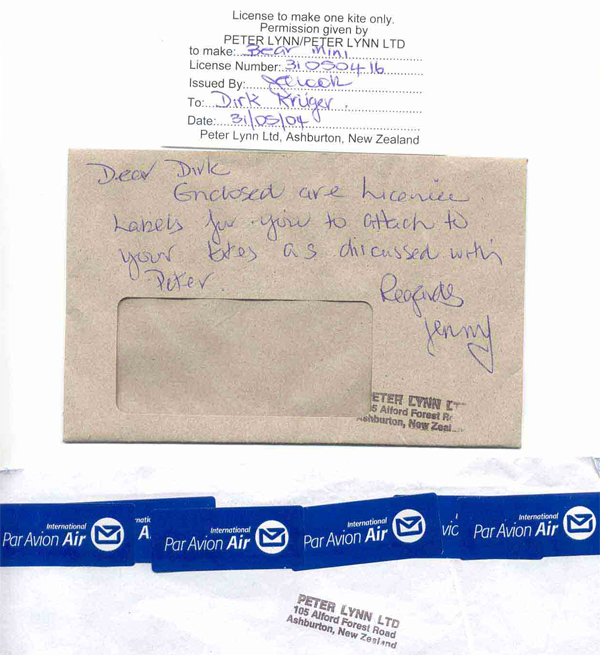 License to make one kite only.
Permission given by
PETER LYNN/PETER LYNN LTD
to make: Bear Mini
License Number: 31050416
Issued By:
To: Dirk Krüger.
Date: 31/05/04
Peter Lynn Ltd, Ashburton, New Zealand
Dear Dirk
Enclosed are Licence
Labels for you to attach to
your kites as discussed with
Peter.
Regards
Jenny
ETER LYNN LT
5 Alford Forest R
Ashburton, New Zeal
International
Par Avion Air
A
International
Par Avion Air
International
Par Avion Air
vic
International
Par Avion Air
PETER LYNN LTD
105 Alford Forest Road
Ashburton, New Zealand